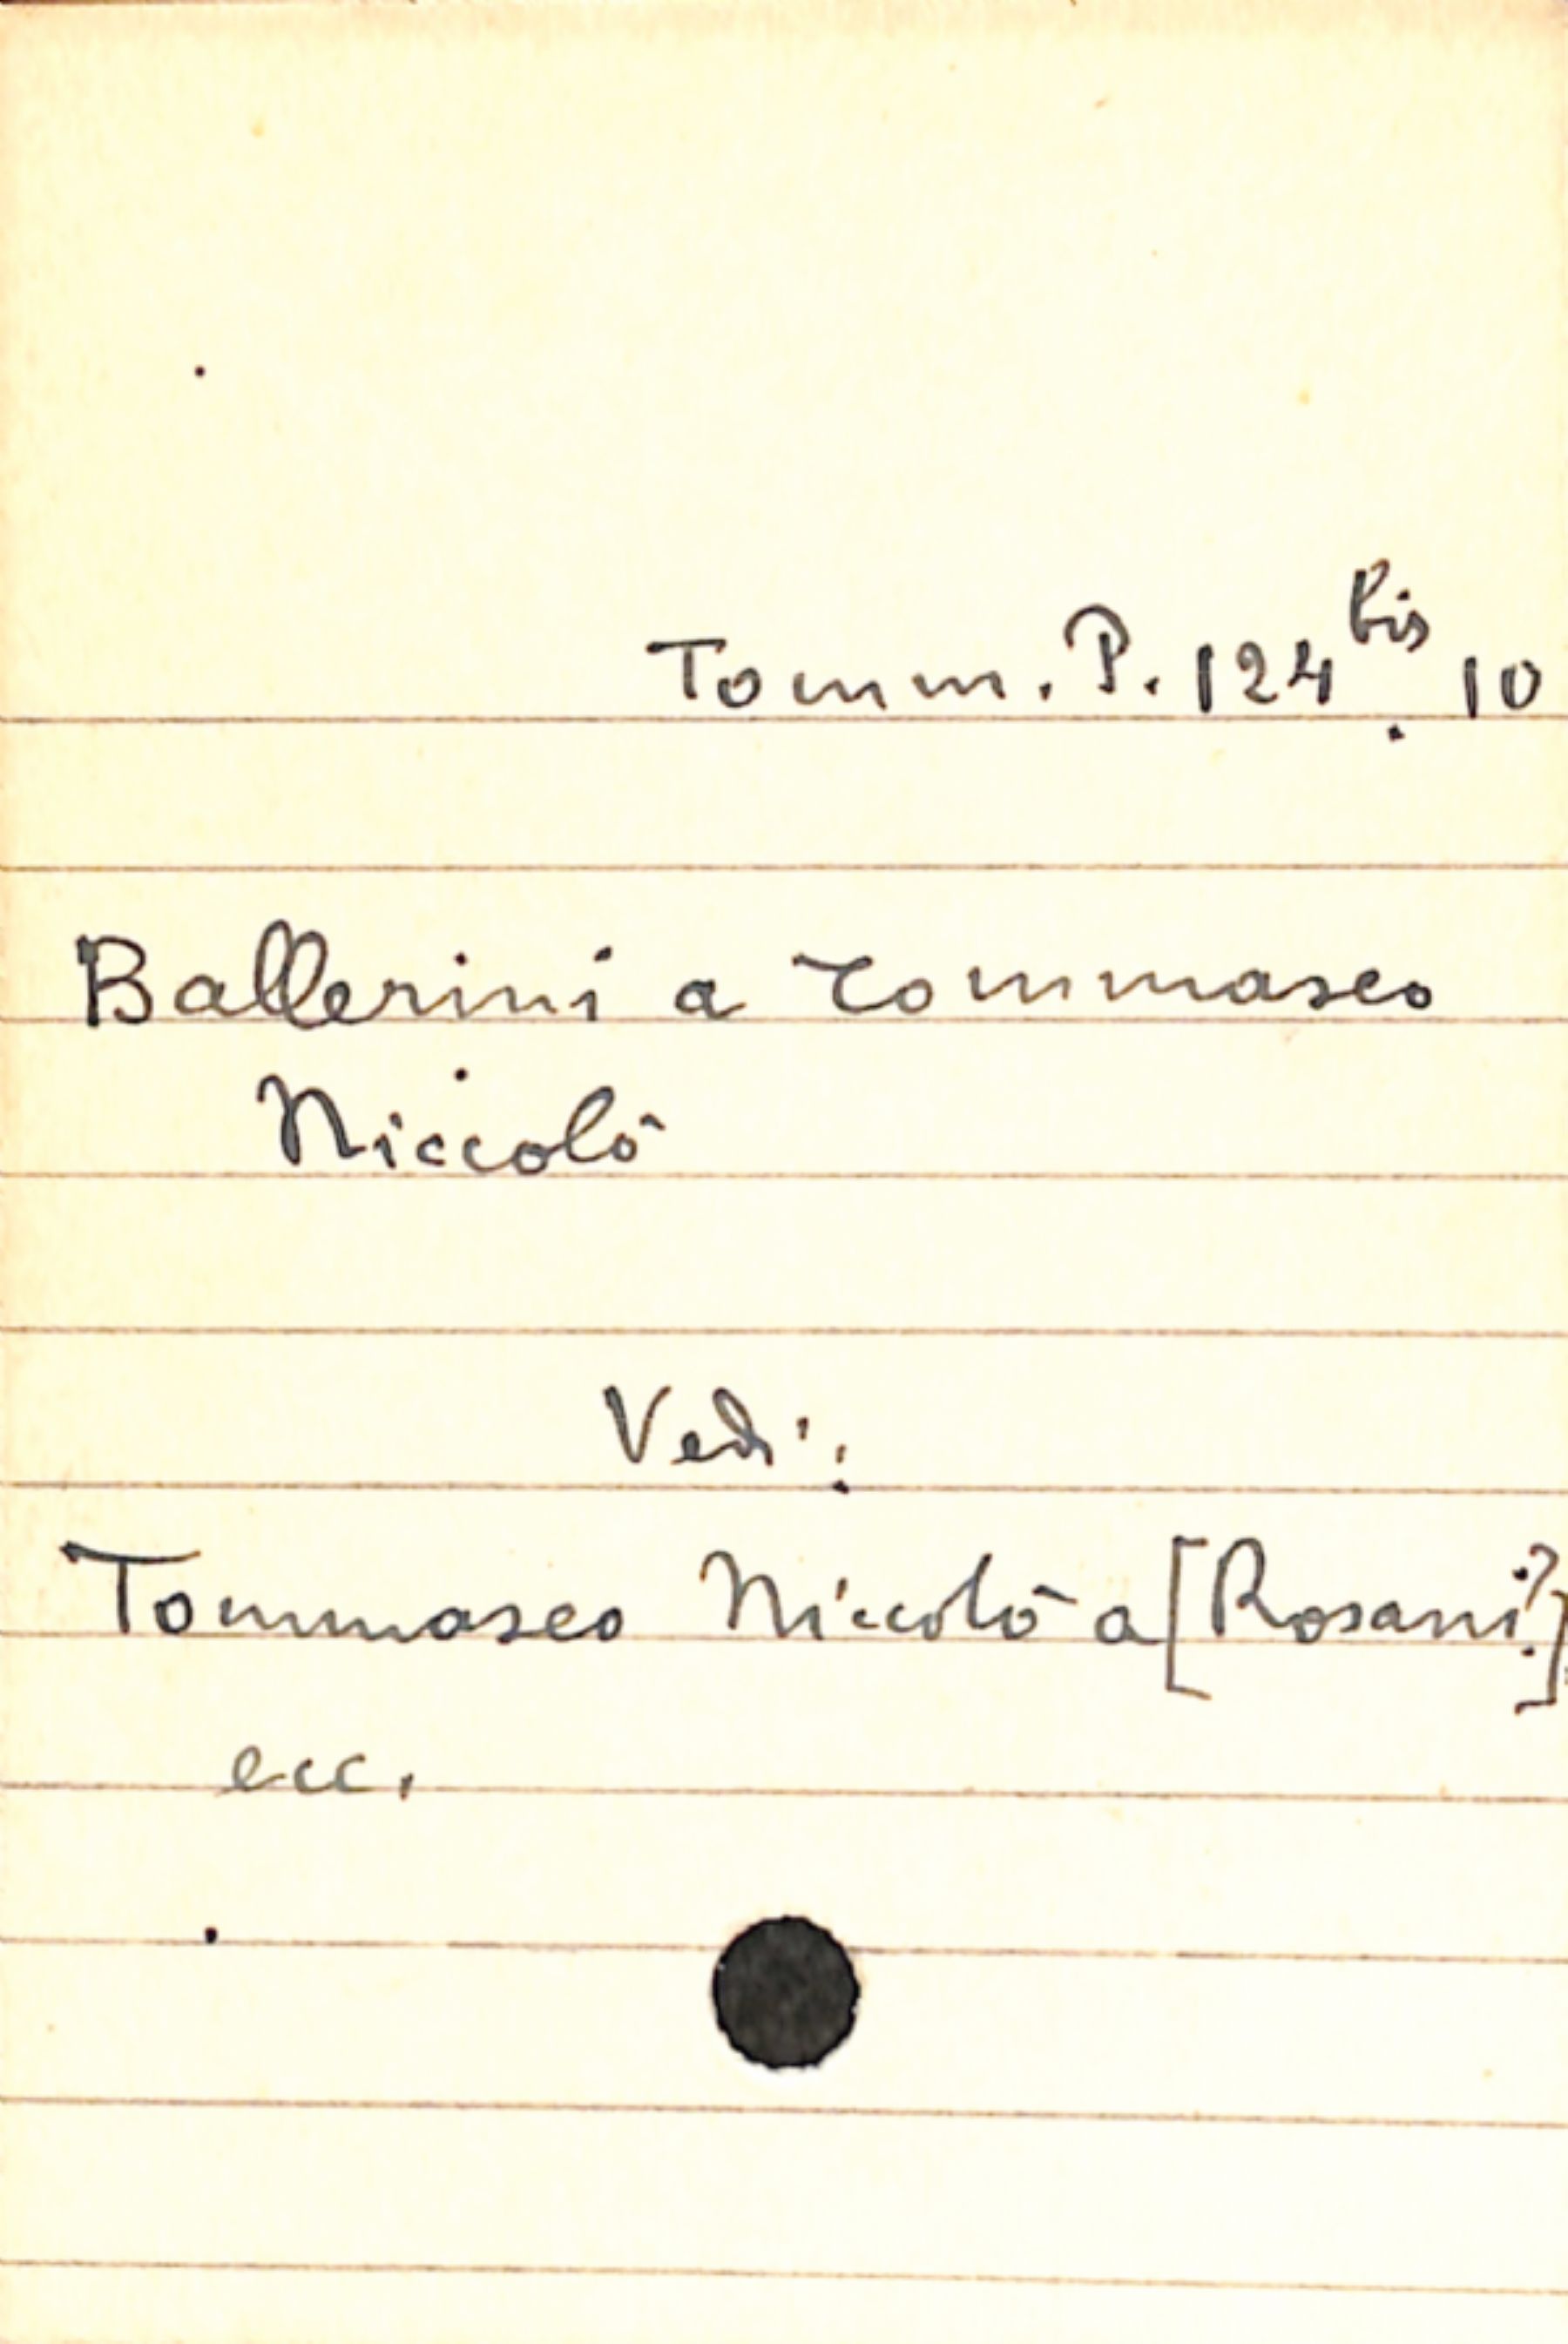 Tomm. P. 124 bis. 10
Ballerini a Tommaseo
Niccolò
Vedi:
Tommaseo Niccolò a [Rosani?]
ecc.